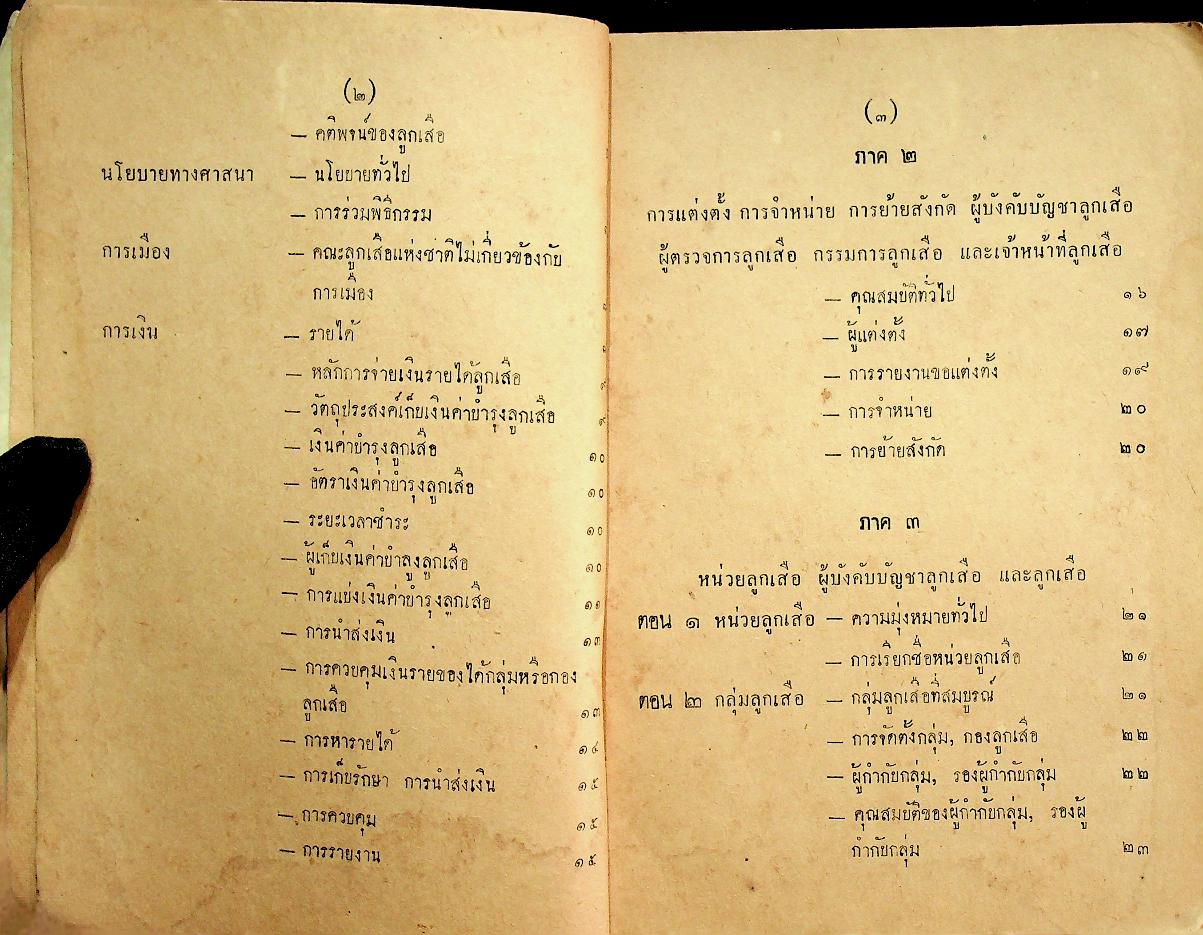 (๒)
— คติพจน์ของลูกเสือ
นโยบายทางศาสนา — นโยบายทั่วไป
— การร่วมพิธีกรรม
การเมือง — คณะลูกเสือแห่งชาติไม่เกี่ยวข้องกับ
การเมือง
การเงิน — รายได้
— หลักการจ่ายเงินรายได้ลูกเสือ ๙
— วัตถุประสงค์เก็บเงินค่าบำรุงลูกเสือ ๙
— เงินค่าบำรุงลูกเสือ ๑๐
— อัตราเงินค่าบำรุงลูกเสือ ๑๐
— ระยะเวลาชำระ ๑๐
— ผู้เก็บเงินค่าบำลุงลูกเสือ ๑๐
— การแบ่งเงินค่าบำรุงลูกเสือ ๑๑
— การนำส่งเงิน ๑๓
— การควบคุมเงินรายของได้กลุ่มหรือกอง
ลูกเสือ ๑๓
— การหารายได้ ๑๔
— การเก็บรักษา การนำส่งเงิน ๑๕
— การควบคุม ๑๕
— การรายงาน ๑๕
(๓)
ภาค ๒
การแต่งตั้ง การจำหน่าย การย้ายสังกัด ผู้บังคับบัญชาลูกเสือ
ผู้ตรวจการลูกเสือ กรรมการลูกเสือ และเจ้าหน้าที่ลูกเสือ
— คุณสมบัติทั่วไป ๑๖
— ผู้แต่งตั้ง ๑๗
— การรายงานขอแต่งตั้ง ๑๙
— การจำหน่าย ๒๐
— การย้ายสังกัด ๒๐
ภาค ๓
หน่วยลูกเสือ ผู้บังคับบัญชาลูกเสือ และลูกเสือ
ตอน ๑ หน่วยลูกเสือ — ความมุ่งหมายทั่วไป ๒๑
— การเรียกชื่อหน่วยลูกเสือ ๒๑
ตอน ๒ กลุ่มลูกเสือ — กลุ่มลูกเสือที่สมบูรณ์ ๒๑
— การจัดตั้งกลุ่ม, กองลูกเสือ ๒๒
— ผู้กำกับกลุ่ม, รองผู้กำกับกลุ่ม ๒๒
— คุณสมบัติของผู้กำกับกลุ่ม, รองผู้
กำกับกลุ่ม ๒๓